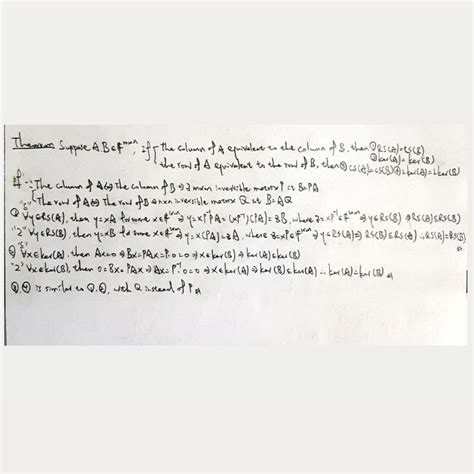 Theorem Suppose A.B∈F^m×n, If { the column of A equivalent to the column of B, then ① RS(A)=RS(B) ② ker(A)=ker(B)
the row of A equivalent to the row of B, then ③ CS(A)=CS(B) ④
Pf: ∵ The column of A⇔ The column of B ⇒ ∃ m×m inversible matrix P st B=PA
The row of A⇔ The row of B ⇒ n×n inversible matrix Q st B=AQ
① "⊆" ∀y∈RS(A), then y=xA for some x∈F^1×m ⇒ y=xP⁻¹PA=(xP⁻¹)(PA)=zB, where z=xP⁻¹∈F^1×m ⇒ y∈RS(B) ⇒ RS(A)⊆RS(B)
"⊇" ∀y∈RS(B), then y=xB for some x∈F^1×m ⇒ y=x(PA)=zA, where z=xP∈F^1×m ⇒ y∈RS(A) ⇒ RS(B)⊆RS(A) ∴ RS(A)=RS(B)
② "⊆" ∀x∈ker(A), then Ax=0 ⇒ Bx=PAx=P·0=0 ⇒ x∈ker(B) ⇒ ker(A)⊆ker(B)
"⊇" ∀x∈ker(B), then 0=Bx=PAx ⇒ Ax=P⁻¹·0=0 ⇒ x∈ker(A) ⇒ ker(B)⊆ker(A) ∴ ker(A)=ker(B) #
③ ④ is similar to ①.②, with Q instead of P #